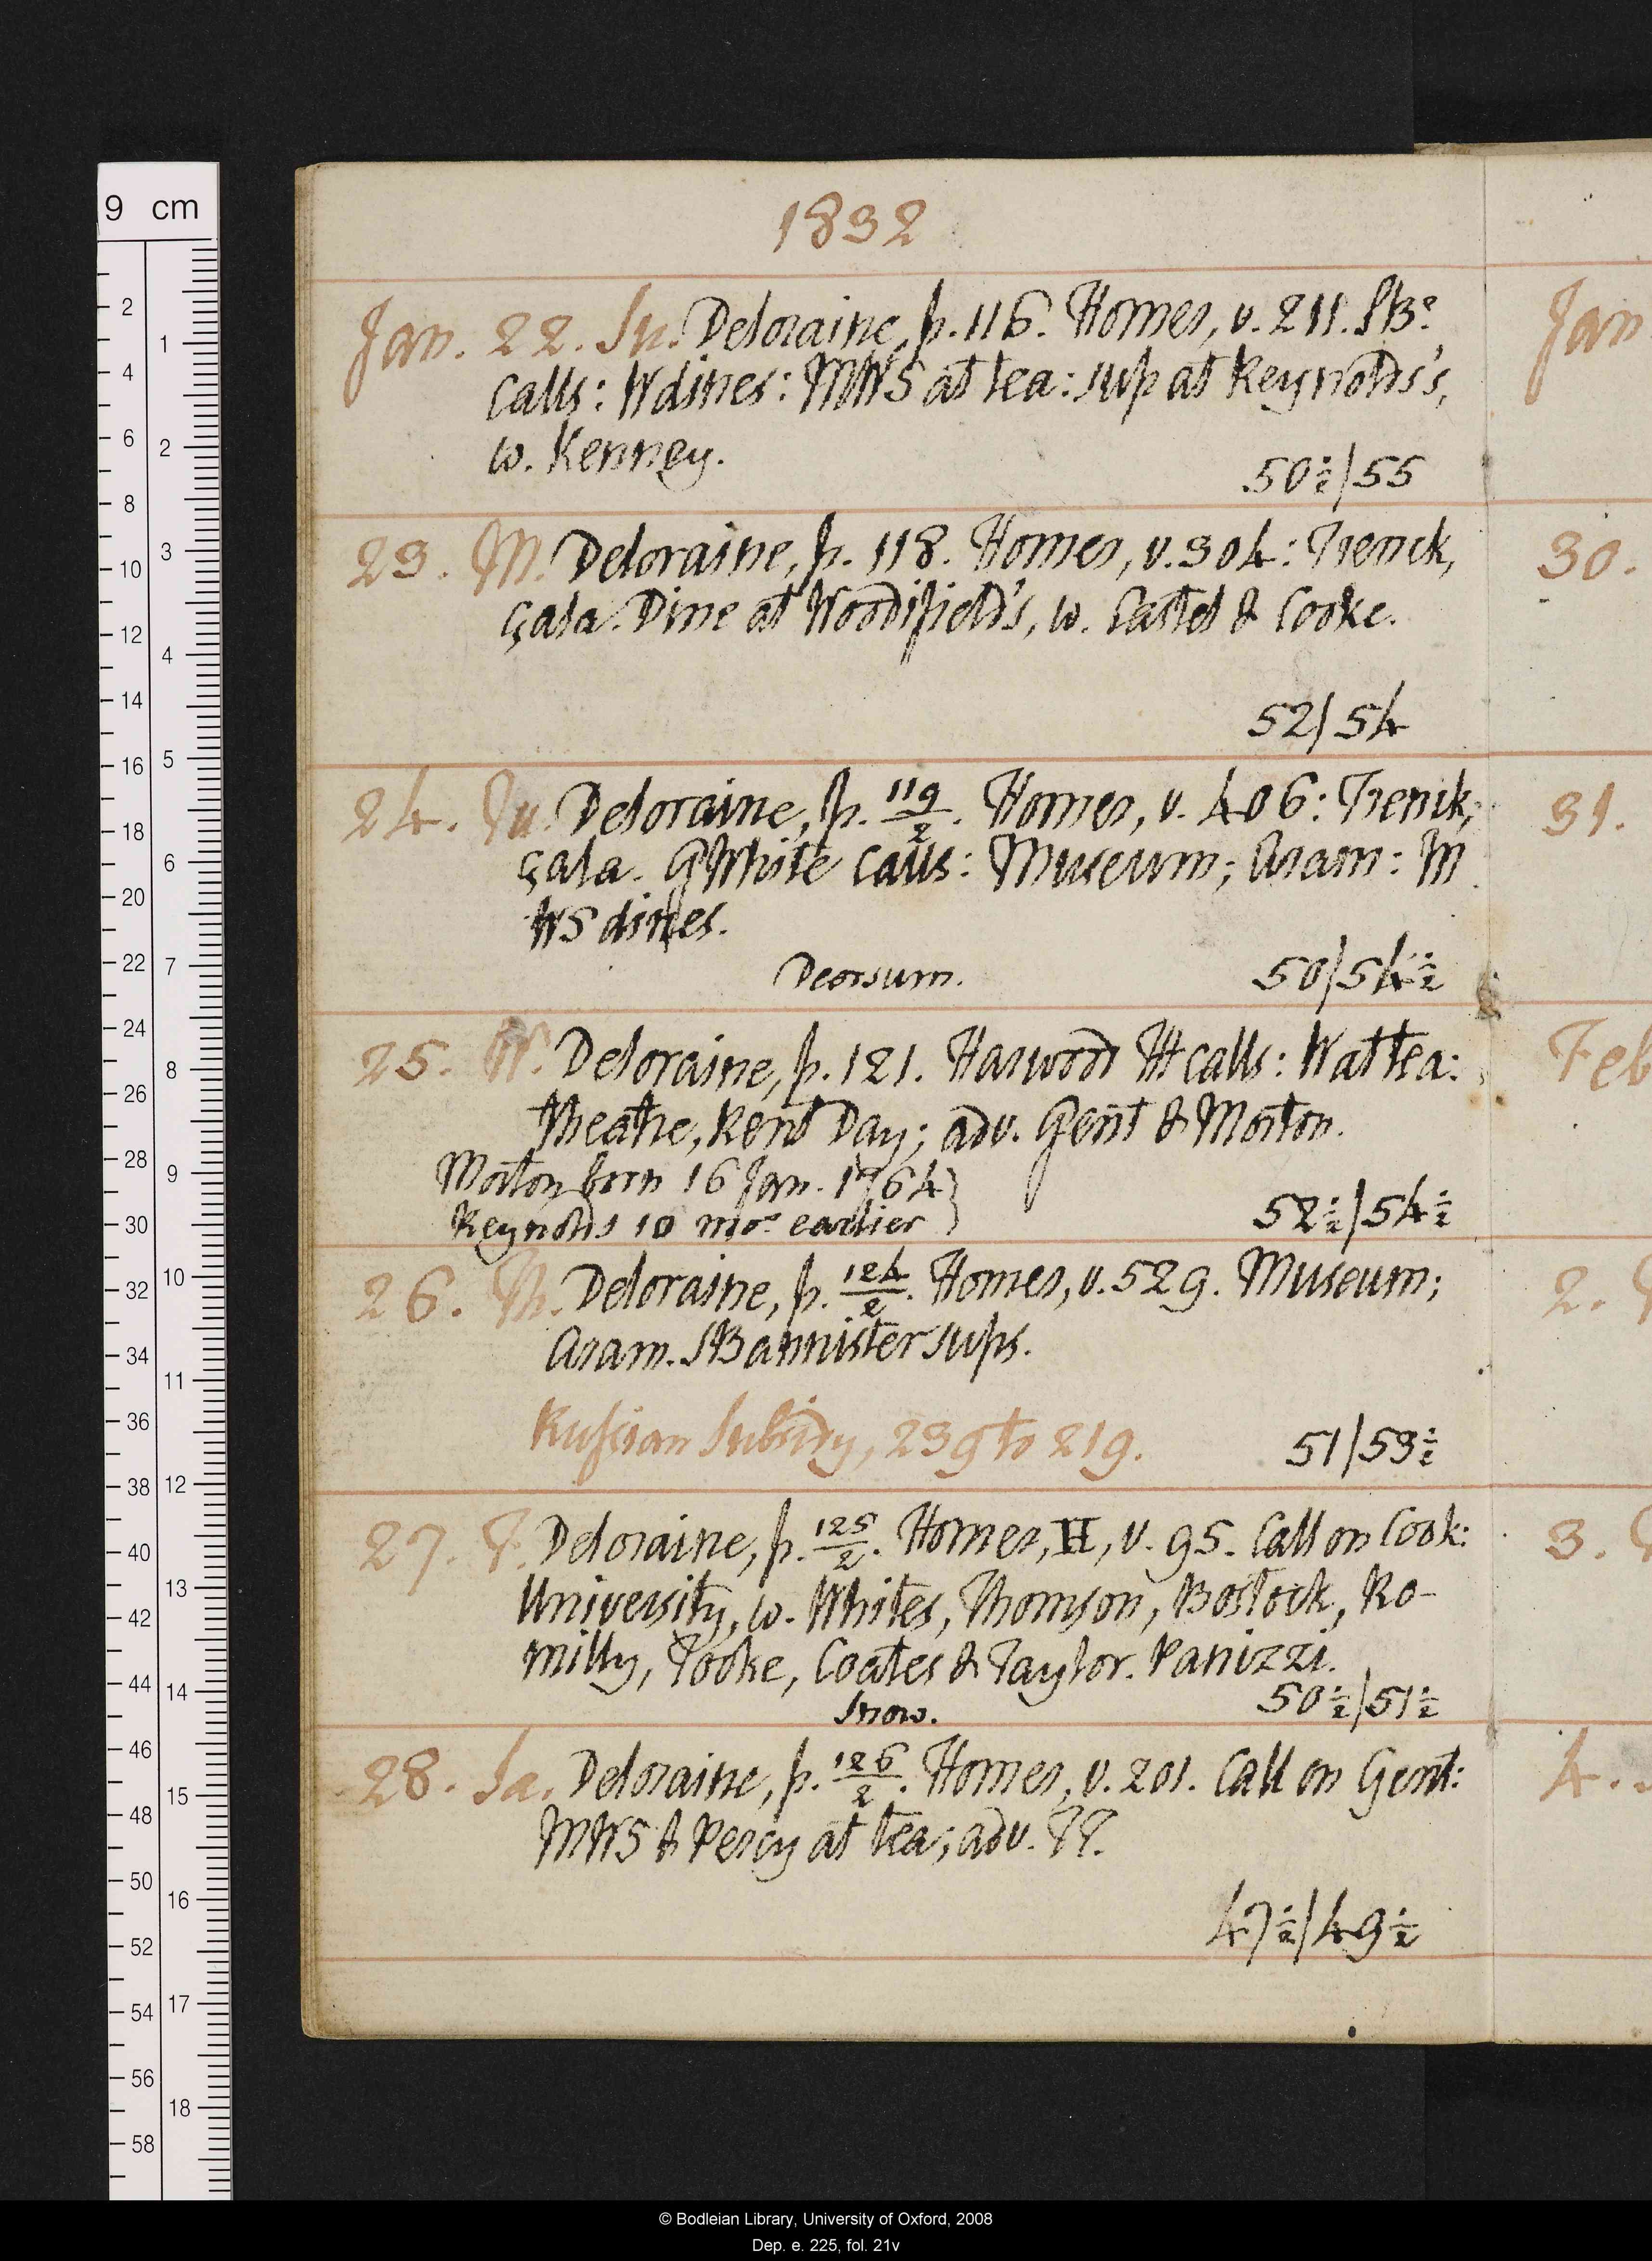 1832
Jan. 22. Su. Deloraine, p. 116. Homer, v. 211. SBr
calls: W dines: MWS at tea: sup at Reynolds's,
w. Kenney.
50½/55
23. M. Deloraine, p. 118. Homer, v. 304: Trenck,
çala. Dine at Woodifield's, w. Castel & Cooke.
52/54
24. Tu. Deloraine, p. 119/2. Homer, v. 406: Trenck,
çala. G White calls: Museum; Aram: M
WS dines.
Deorsum.
50/54½
25. W. Deloraine, p. 121. Harwood calls: W at tea:
theatre, Rent Day; adv. Gent & Morton.
Morton born 16 Jan. 1764
Reynolds 10 mos earlier
52½/54½
26. Th. Deloraine, p. 124/2. Homer, v. 529. Museum;
Aram. SBannister sups.
Russian Subsidy, 239 to 219.
51/53½
27. F. Deloraine, p. 125/2. Homer, H, v. 95. Call on Cook:
University, w. Whites, Thomson, Bostock, Ro-
milly, Tooke, Coates & Taylor. Panizzi.
Snow.
50½/51½
28. Sa. Deloraine, p. 126/2. Homer, v. 201. Call on Gent:
MWS & Percy at tea; adv. TT.
47½/49½
Jan
30.
31.
Feb
2.
3.
4.
9 cm
2 4 6 8 10 12 14 16 18 20 22 24 26 28 30 32 34 36 38 40 42 44 46 48 50 52 54 56 58
1 2 3 4 5 6 7 8 9 10 11 12 13 14 15 16 17 18
© Bodleian Library, University of Oxford, 2008
Dep. e. 225, fol. 21v